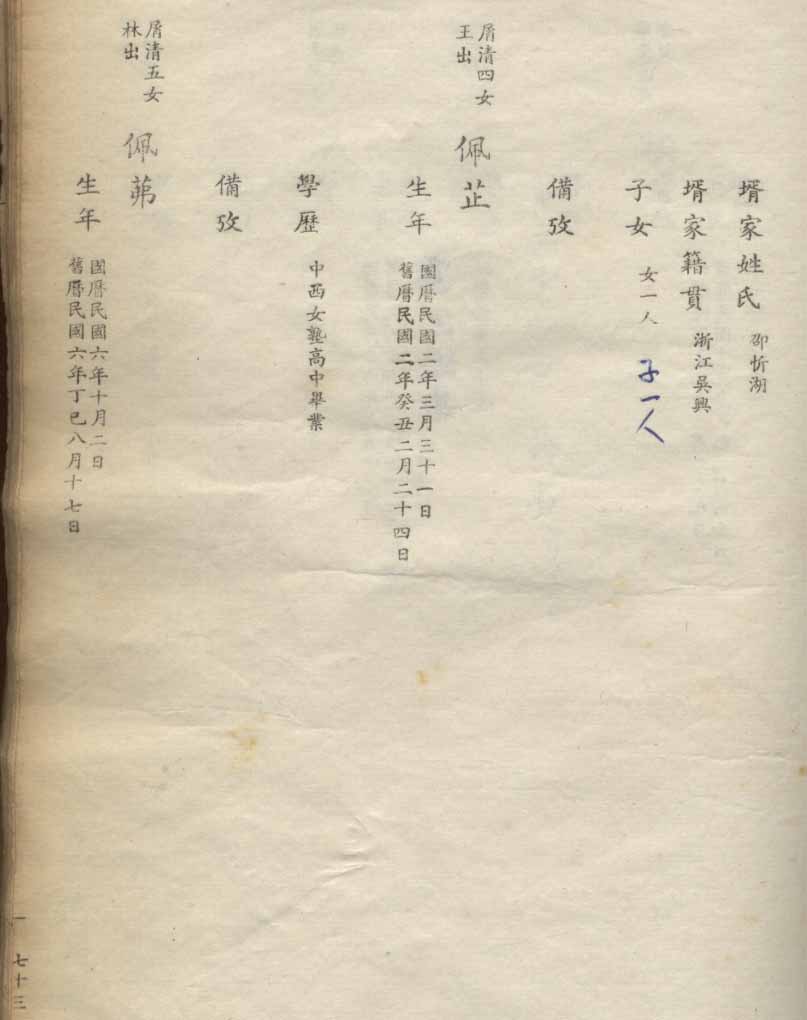 壻家姓氏 邵忻湖
壻家籍貫 浙江吳興
子女 女一人 子一人
備攷
屑清四女
王出
佩芷
生年
國曆民國二年三月三十一日
舊曆民國二年癸丑二月二十四日
學歷 中西女塾高中畢業
備攷
屑清五女
林出
佩茀
生年
國曆民國六年十月二日
舊曆民國六年丁巳八月十七日
一 七十三